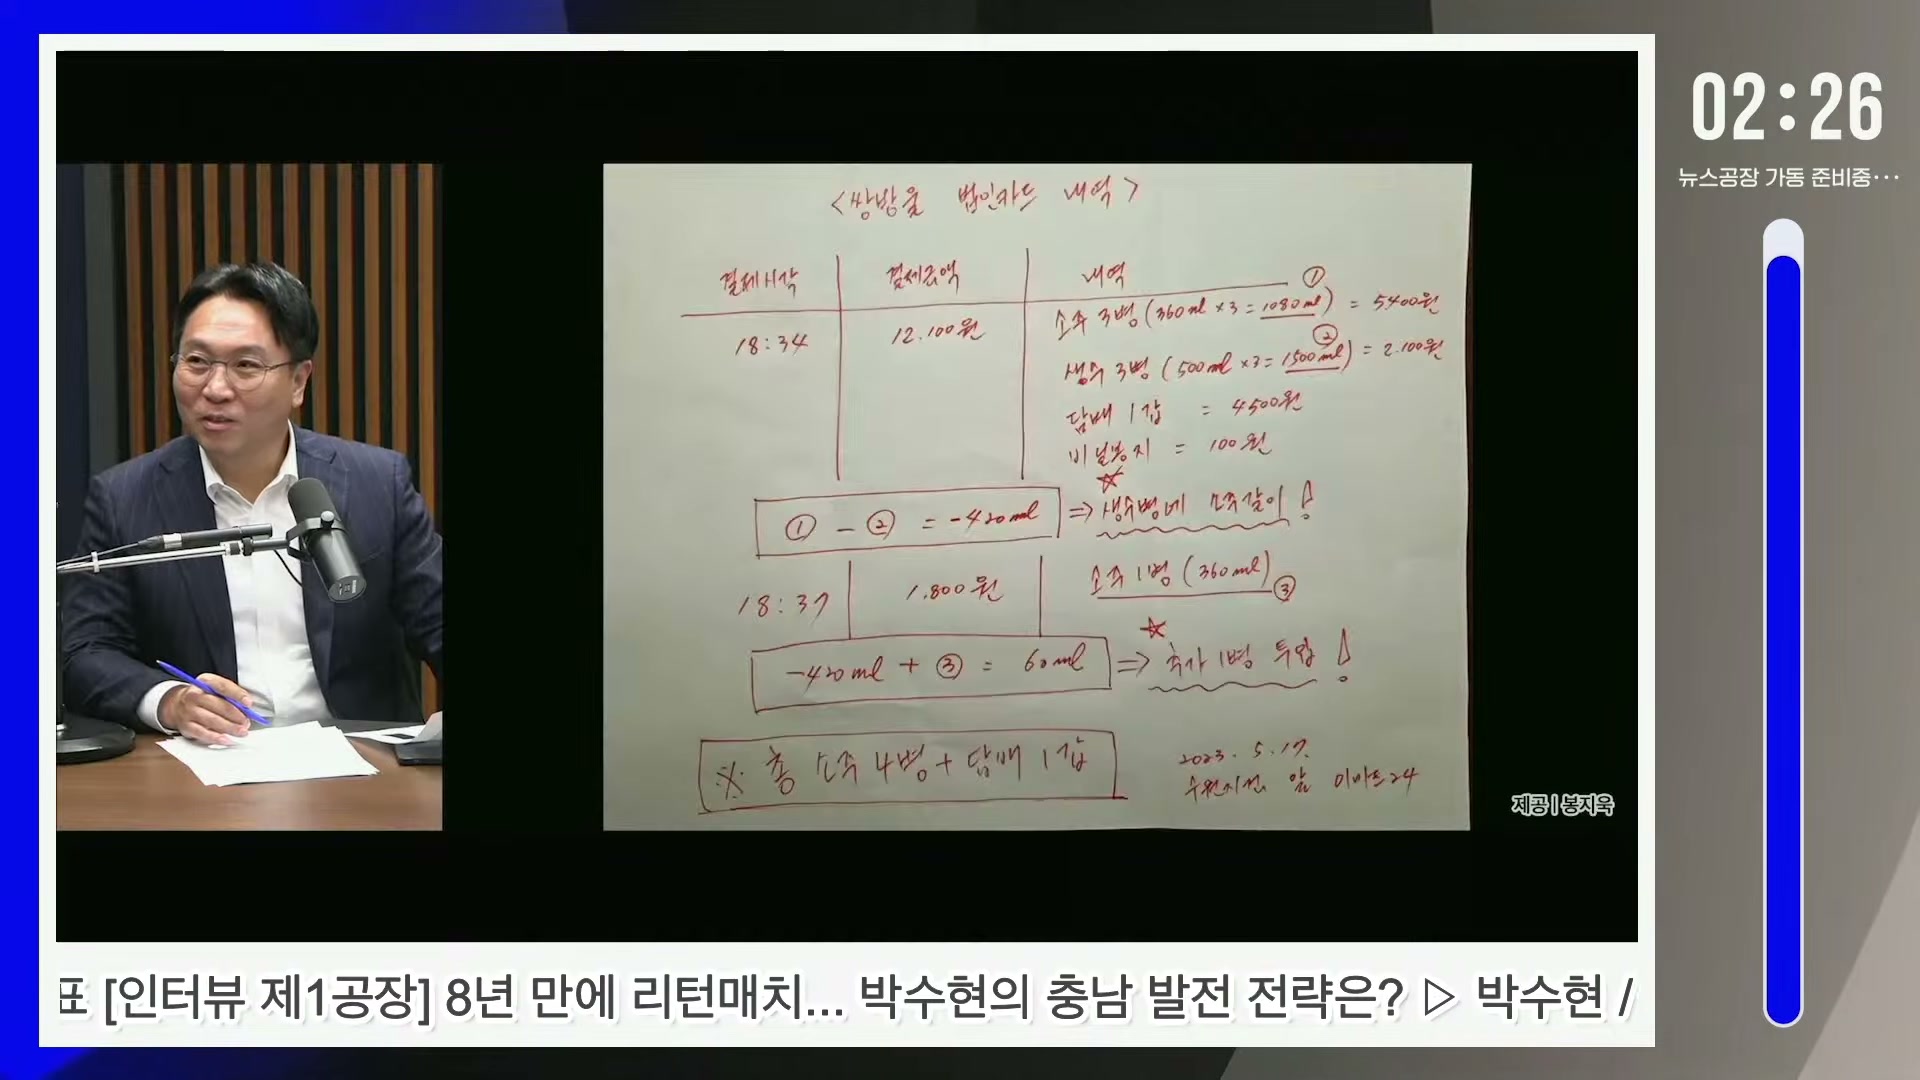 02:26
뉴스공장 가동 준비중···
<쌍방울 법인카드 내역>
결제시각 결제금액 내역
18:34 12.100원
소주 3병 (360ml ×3 = 1080ml) = 5400원 ①
생수 3병 (500ml ×3 = 1500ml) = 2.100원 ②
담배 1갑 = 4500원
비닐봉지 = 100원
① - ② = -420ml ⇒ ☆ 생수병에 소주갈이!
18:37 1.800원 소주 1병 (360ml) ③
-420ml + ③ = 60ml ⇒ ☆ 추가 1병 투입!
※ 총 소주 4병 + 담배 1갑
2023. 5. 17.
수원지검 앞 이마트24
제공 | 봉지욱
표 [인터뷰 제1공장] 8년 만에 리턴매치... 박수현의 충남 발전 전략은? ▷ 박수현 /